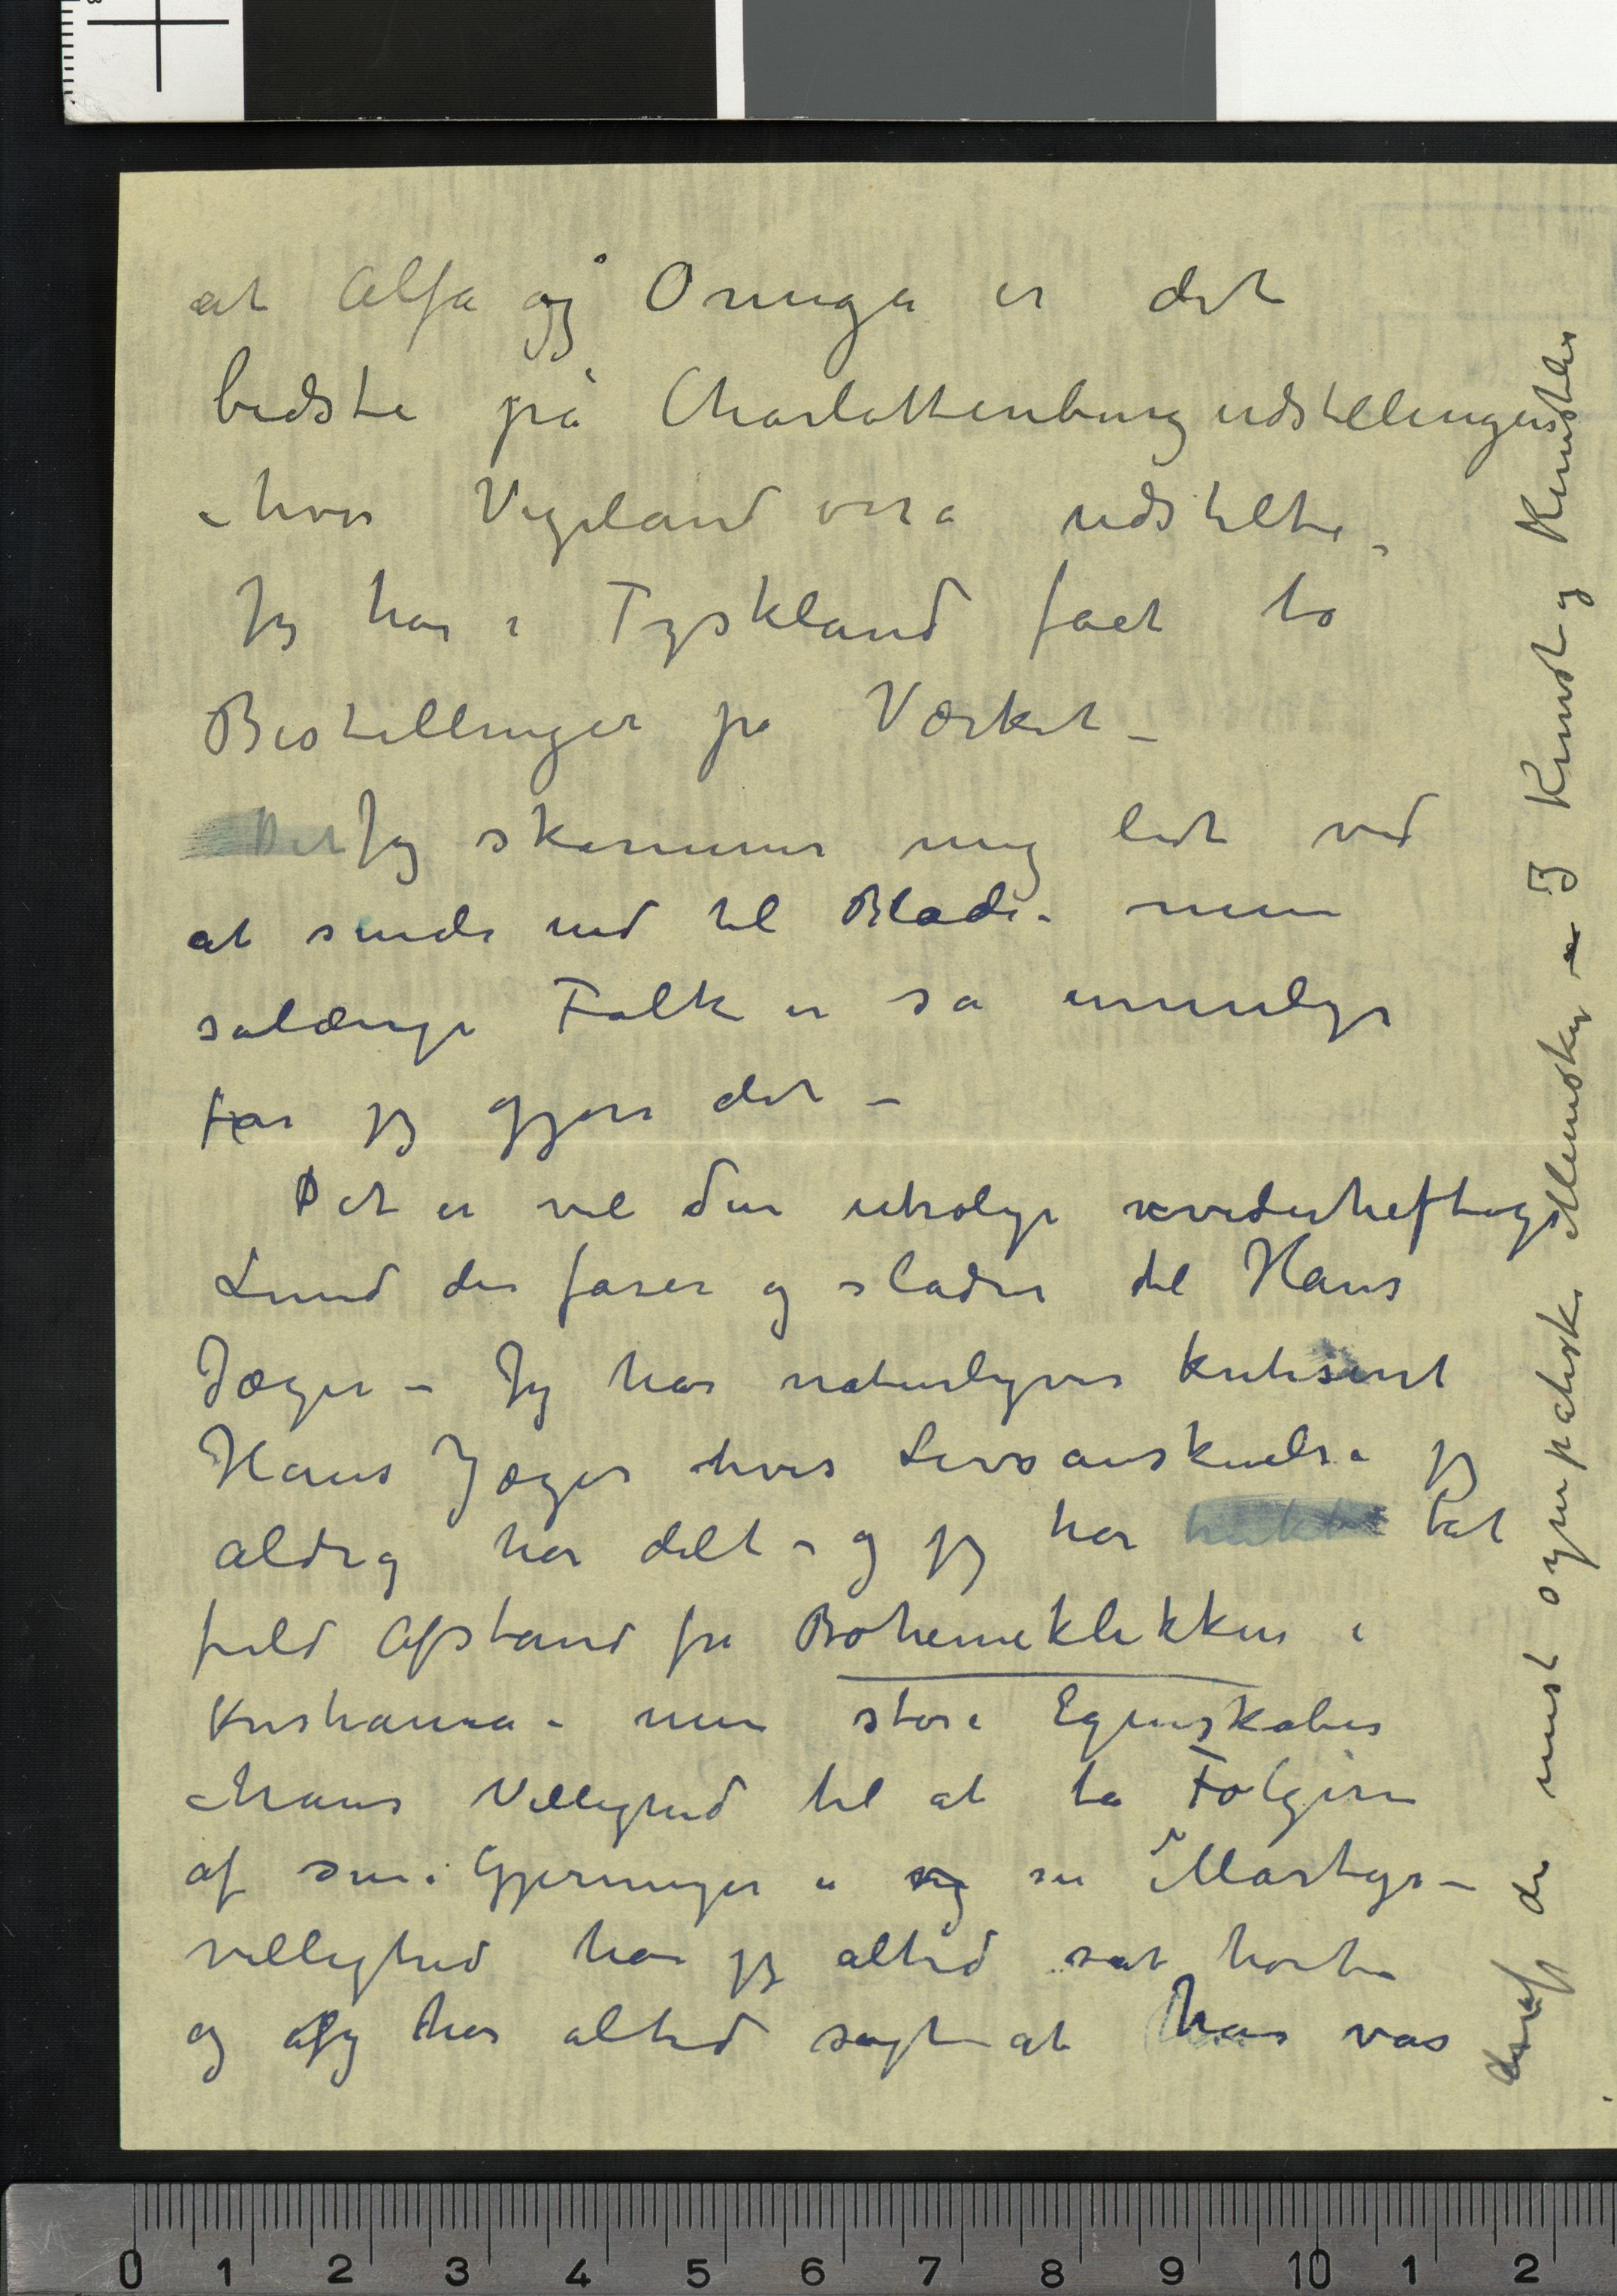 at Alfa og Omega er det
bedste på Charlottenburgudstillingen
– hvor Vigeland osså udstilte –
Jeg har i Tyskland fået to
Bestillinger på Værket –
Det Jeg skammer mig lidt ved
at sende ind til Blade – men
sålænge Folk er så umulige
får jeg gjøre det –
Det er vel den utrolige vederheftige
Lund der farer og sladrer til Hans
Jæger – Jeg har naturligvis kritiseret
Hans Jæger hvis Livsanskuelse jeg
aldrig har delt – og jeg har trukket tat
fuld Afstand fra Bohemeklikken i
Kristiania – men store Egenskaber
– hans Villighed til at ta Følgerne
af sine Gjerninger – og sin Martyr-
villighed har jeg altid sat høit –
og jeg har altid sagt at han var
deraf de mest sympatiske Mennesker – I Kunst og Kunstler
0 1 2 3 4 5 6 7 8 9 10 1 2